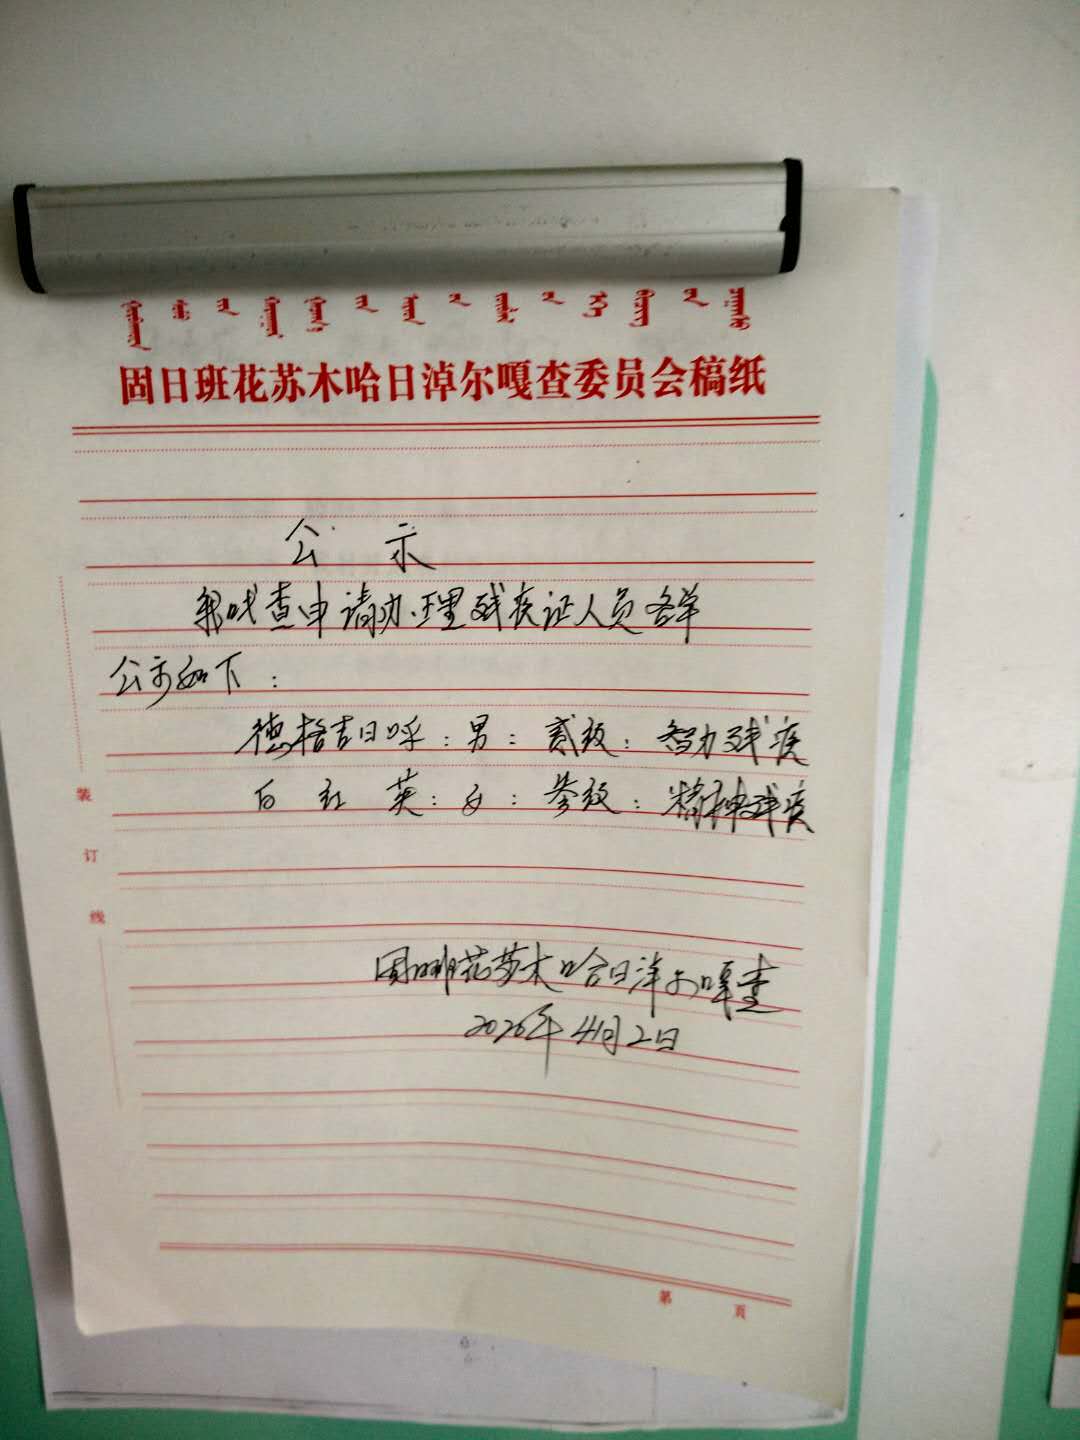 固日班花苏木哈日淖尔嘎查委员会稿纸
公示
我嘎查申请办理残疾证人员名单
公示如下：
德格吉日呼：男：贰级：智力残疾
白红英：女：叁级：精神残疾
固日班花苏木哈日淖尔嘎查
2026年4月2日
装
订
线
第 页